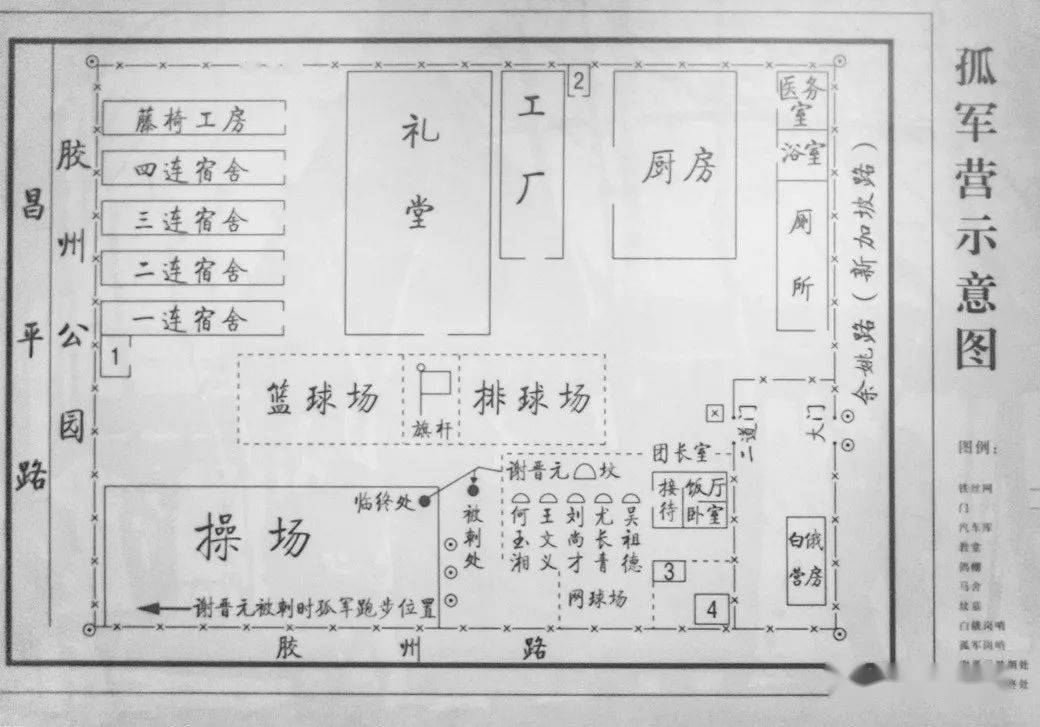 孤军营示意图
昌平路
胶州公园
藤椅工房
四连宿舍
三连宿舍
二连宿舍
一连宿舍
1
礼堂
工厂
2
厨房
医务室
浴室
厕所
余姚路（新加坡路）
篮球场
旗杆
排球场
二道门
大门
团长室
谢晋元
坟
接待
饭厅
卧室
临终处
被刺处
何玉湘
王文义
刘尚才
尤长青
吴祖德
操场
谢晋元被刺时孤军跑步位置
3
网球场
4
白俄营房
胶州路
图例：
铁丝网
门
汽车库
教堂
鸽棚
马舍
坟墓
白俄岗哨
孤军岗哨